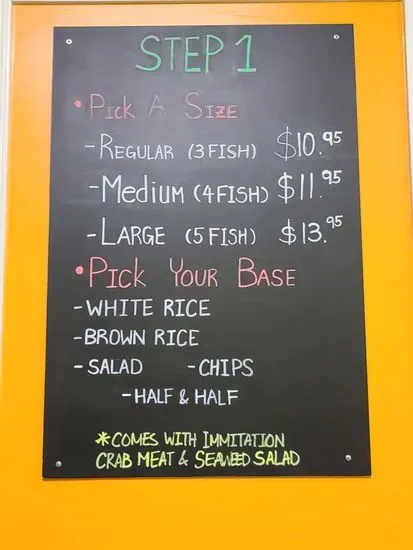 STEP 1
• PICK A SIZE
- REGULAR (3 FISH) $10.95
- MEDIUM (4 FISH) $11.95
- LARGE (5 FISH) $13.95
• PICK YOUR BASE
- WHITE RICE
- BROWN RICE
- SALAD - CHIPS
- HALF & HALF
*COMES WITH IMMITATION
CRAB MEAT & SEAWEED SALAD